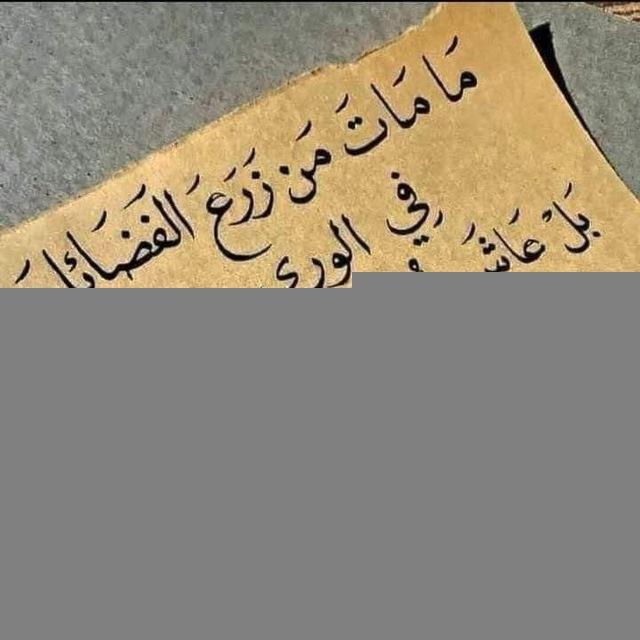 مَا مَاتَ مَن زَرَعَ الفَضَائلَ
فِي الورى
بَلْ عَاشَ